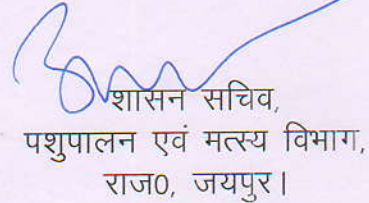 शासन सचिव,
पशुपालन एवं मत्स्य विभाग,
राज0, जयपुर।